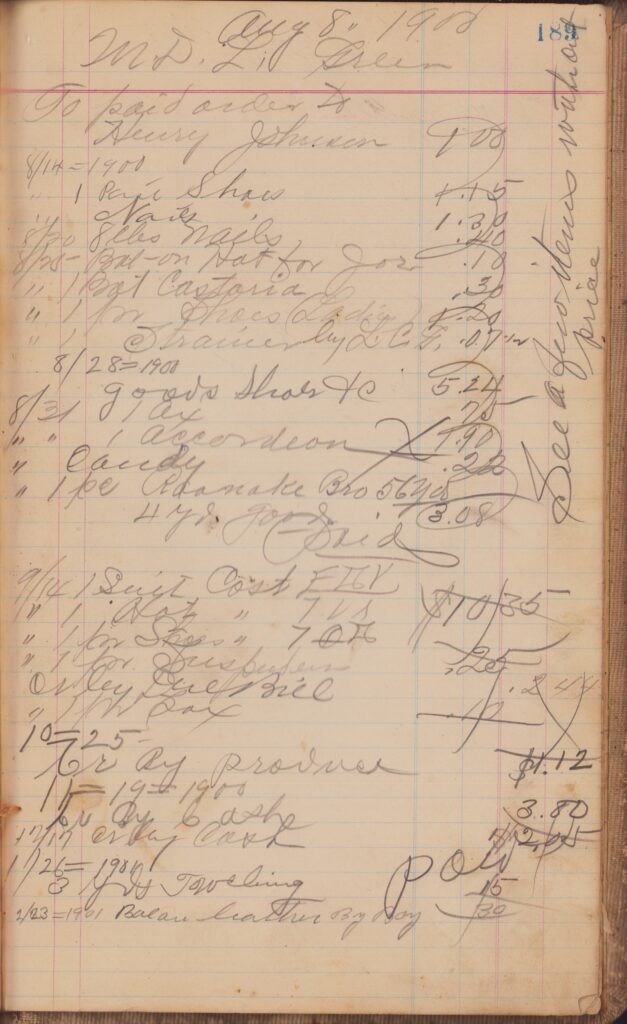 Aug 8" 1900
M D. L. Green
To paid order to
Henry Johnson 1 00
8/14 = 1900
" 1 Pair Shoes 1.15
" Nails 1.30
8/20 8 lbs Nails .40
8/25 - Hat for .10
" 1 Bot Castoria .30
" 1 pr Shoes (Ladies) 1.20
" 1 Strainer by L. C. F. .07
8/28 = 1900
goods Shoes &c 5.24
8/31 1 Ax .75
" " 1 accordeon 1.90
" Candy .20
" 1 pc Roanoke Bro 56 yds
4 yd. goods 3.08
Paid
9/14 1 Suit Cost
" 1 Hat " $10 35
" 1 pr Shoes "
" 1 pr Suspenders .25
Cr by Due Bill .244
" 1 pr Sox .10
10 = 25 -
Cr By produce $1.12
11 = 19 = 1900
Cr By Cash 3.80
12/17 Cr by Cash 2.05
1/26 = 1901 paid
3 yds Toweling 15
2/23 = 1901 leather By Boy 30
See a few items without
price